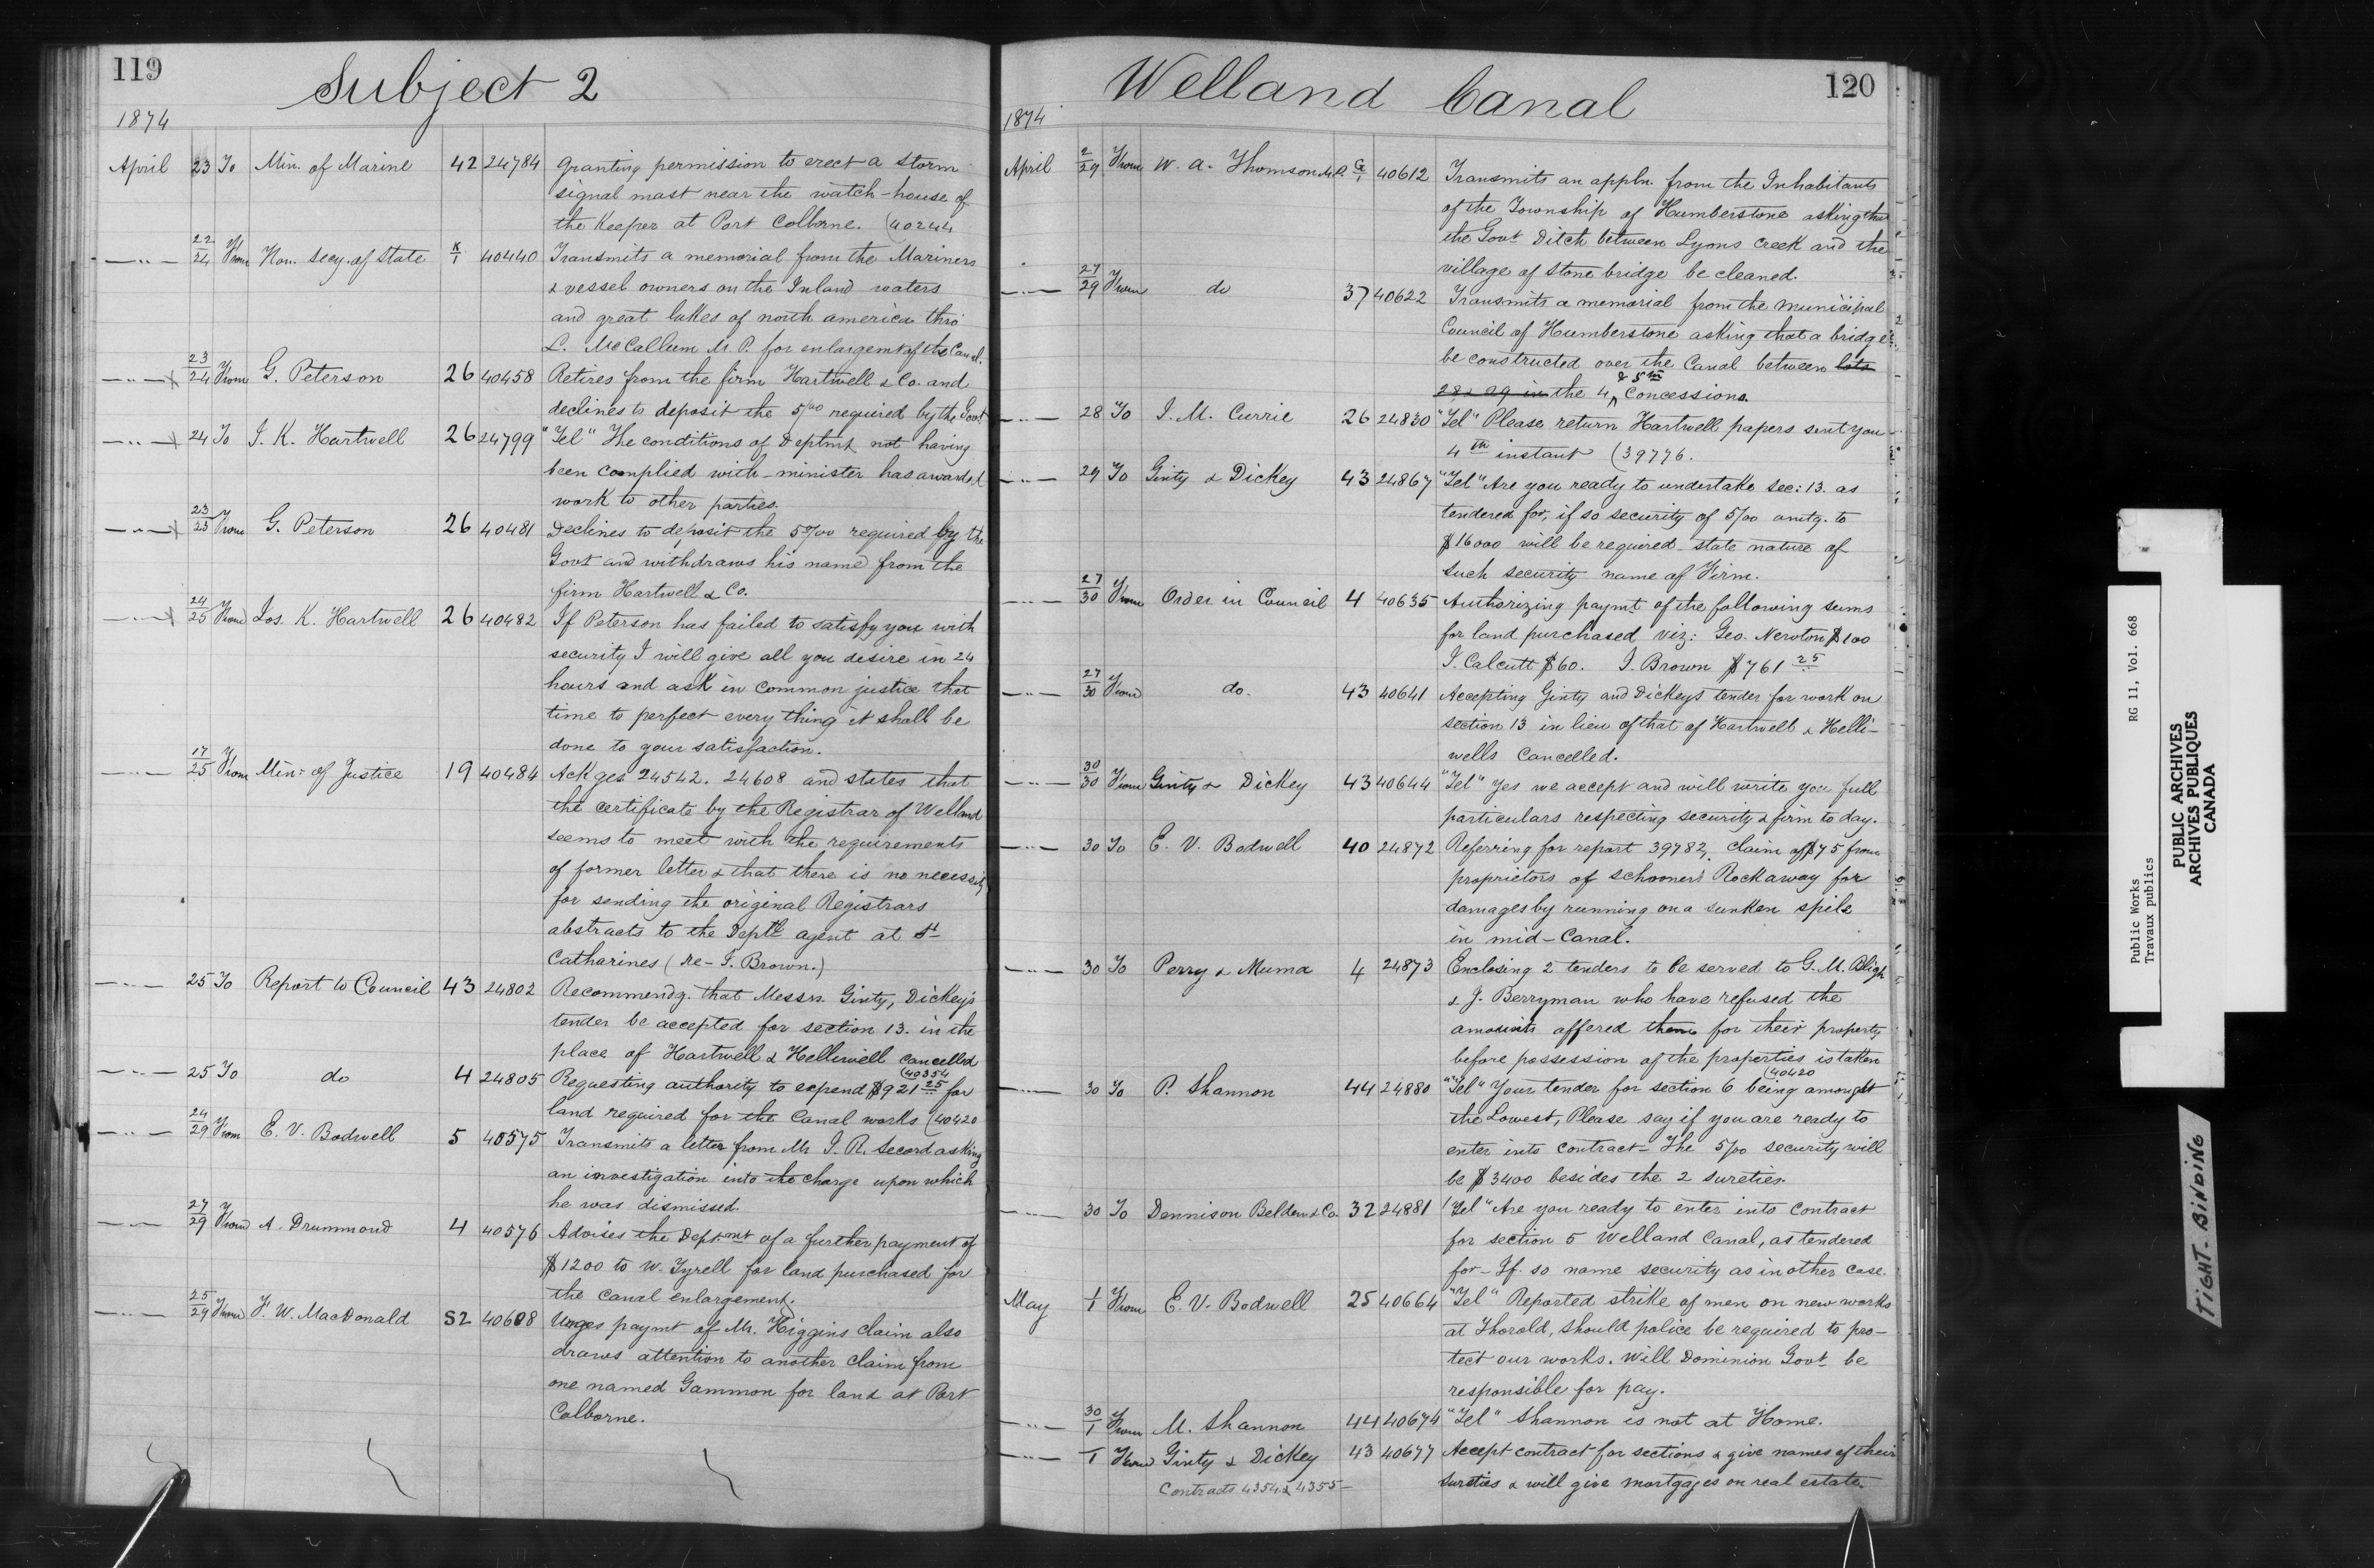 119
Subject 2
1874
April 23 To Min. of Marine 42 24784 Granting permission to erect a storm
signal mast near the watch-house of
the Keeper at Port Colborne. (40244
—"— 22/24 From Hon. Secy. of State K/1 40440 Transmits a memorial from the Mariners
& vessel owners on the Inland waters
and great lakes of north america thro'
L. McCallum M.P. for enlargemt of the Canal.
—"— x 23/24 From G. Peterson 26 40458 Retires from the firm Hartwell & Co. and
declines to deposit the 5/00 required by the Govt
—"— x 24 To J. K. Hartwell 26 24799 "Tel" The conditions of Deptmt not having
been complied with - minister has awarded
work to other parties.
—"— x 23/25 From G. Peterson 26 40481 Declines to deposit the 5%00 required by the
Govt and withdraws his name from the
firm Hartwell & Co.
—"— x 24/25 From Jos. K. Hartwell 26 40482 If Peterson has failed to satisfy you with
security I will give all you desire in 24
hours and ask in common justice that
time to perfect every thing it shall be
done to your satisfaction.
—"— 17/25 From Minr of Justice 19 40484 Ackges 24542. 24608 and states that
the certificate by the Registrar of Welland
seems to meet with the requirements
of former letter & that there is no necessity
for sending the original Registrars
abstracts to the Deptl agent at St
Catharines (re- J. Brown.)
—"— 25 To Report to Council 43 24802 Recommendg. that Messrs. Ginty, Dickey's
tender be accepted for section 13. in the
place of Hartwell & Helliwell cancelled
(40354
—"— 25 To do 4 24805 Requesting authority to expend $921 25 for
land required for the Canal works (40420
—"— 24/29 From E. V. Bodwell 5 40575 Transmits a letter from Mr J. R. Secord asking
an investigation into the charge upon which
he was dismissed.
—"— 27/29 From A. Drummond 4 40576 Advises the Deptmnt of a further payment of
$1200 to W. Tyrell for land purchased for
the canal enlargement.
—"— 25/29 From F. W. MacDonald 52 40608 Urges paymt of Mr. Higgins claim also
draws attention to another claim from
one named Gammon for land at Port
Colborne.
120
Welland Canal
1874
April 2/29 From W. A. Thomson M.P. G/1 40612 Transmits an appln. from the Inhabitants
of the Township of Humberstone asking that
the Govt Ditch between Lyons creek and the
village of Stone bridge be cleaned.
—"— 27/29 From do 37 40622 Transmits a memorial from the Municipal
Council of Humberstone asking that a bridge
be constructed over the Canal between lots
28 & 29 in the 4 & 5th Concessions.
—"— 28 To J. M. Currie 26 24830 "Tel" Please return Hartwell papers sent you
4th instant (39776.
—"— 29 To Ginty & Dickey 43 24867 "Tel" Are you ready to undertake Sec: 13. as
tendered for, if so security of 5/00 amtg. to
$16000 will be required - state nature of
such security name of Firm.
—"— 27/30 From Order in Council 4 40635 Authorizing paymt of the following sums
for land purchased viz: Geo. Newton $100
J. Calcutt $60. J. Brown $761 25
—"— 27/30 From do. 43 40641 Accepting Ginty and Dickeys tender for work on
section 13 in lieu of that of Hartwell & Helli-
wells cancelled.
—"— 30/30 From Ginty & Dickey 43 40644 "Tel" Yes we accept and will write you full
particulars respecting security & firm to day.
—"— 30 To E. V. Bodwell 40 24872 Referring for report 39782, claim of $75 from
proprietors of schooner Rockaway for
damages by running on a sunken spile
in mid-Canal.
—"— 30 To Perry & Muma 4 24873 Enclosing 2 tenders to be served to G. M. Bligh
& J. Berryman who have refused the
amounts offered them for their property
before possession of the properties is taken
(40420
—"— 30 To P. Shannon 44 24880 "Tel" Your tender for section 6 being amongst
the Lowest, Please say if you are ready to
enter into contract - The 5/00 security will
be $3400 besides the 2 sureties.
—"— 30 To Dennison Belden & Co. 32 24881 "Tel" Are you ready to enter into contract
for section 5 Welland Canal, as tendered
for - If so name security as in other case.
May 1/1 From E. V. Bodwell 25 40664 "Tel" Reported strike of men on new works
at Thorold, should police be required to pro-
tect our works. Will Dominion Govt be
responsible for pay.
—"— 30/1 From M. Shannon 44 40674 "Tel" Shannon is not at Home.
—"— 1 From Ginty & Dickey 43 40677 Accept contract for sections & give names of their
Contracts 4354 & 4355 — sureties & will give mortgages on real estate.
Public Works RG 11, Vol. 668
Travaux publics
PUBLIC ARCHIVES
ARCHIVES PUBLIQUES
CANADA
TIGHT. BINDING